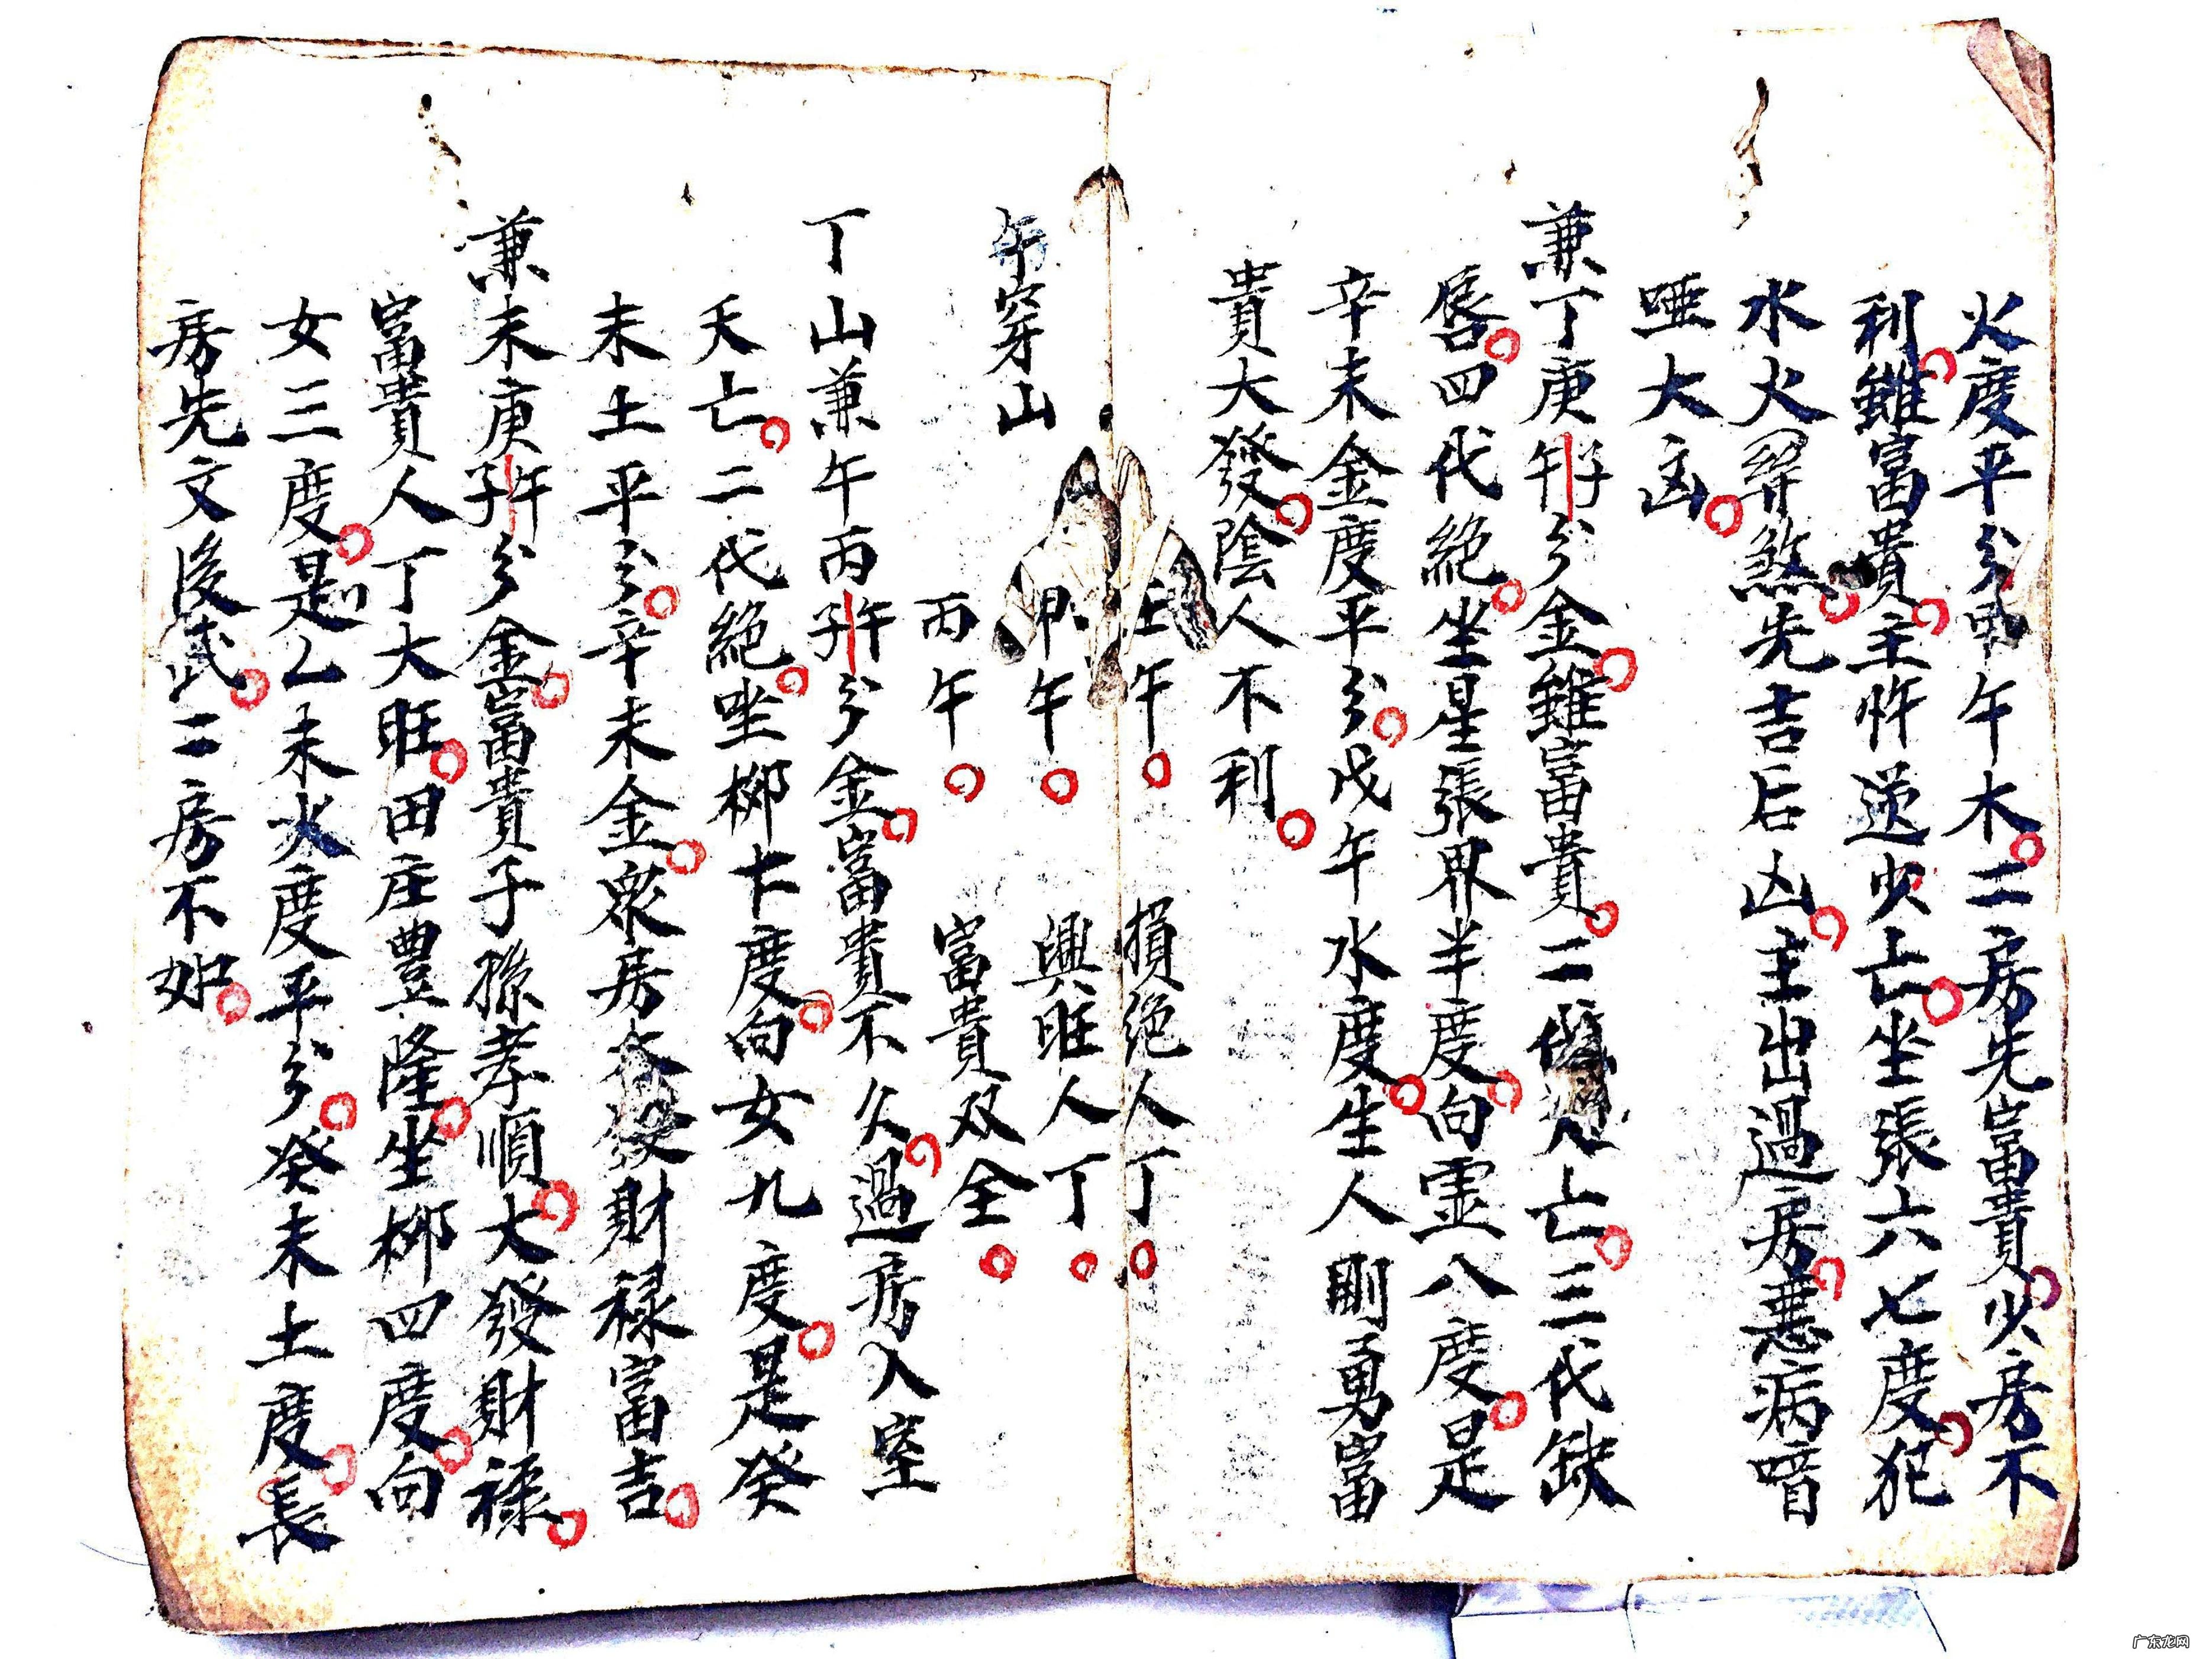 火度平分甲午木二房先富貴少房不
利雖富貴主忤逆火亡坐張六七度犯
水火關煞先吉后凶主出過房惡病喑
啞大凶
兼丁庚午子分金雖富貴二代亡三代缺
唇四代絕坐星張界半度向虛八度是
辛未金度平分戊午水度生人剛勇富
貴大發陰人不利
壬午 損絕人丁
午穿山 甲午 興旺人丁
丙午 富貴双全
丁山兼午丙子午分金富貴不久過房入室
夭亡二代絕坐柳十度向女九度是癸
未土平分辛未金眾房大發財祿富吉
兼未庚子午分金富貴子孫孝順大發財祿
富貴人丁大旺田庄豊隆坐柳四度向
女三度是乙未火度平分癸未土度長
房先文後武二房不如
广东龙网